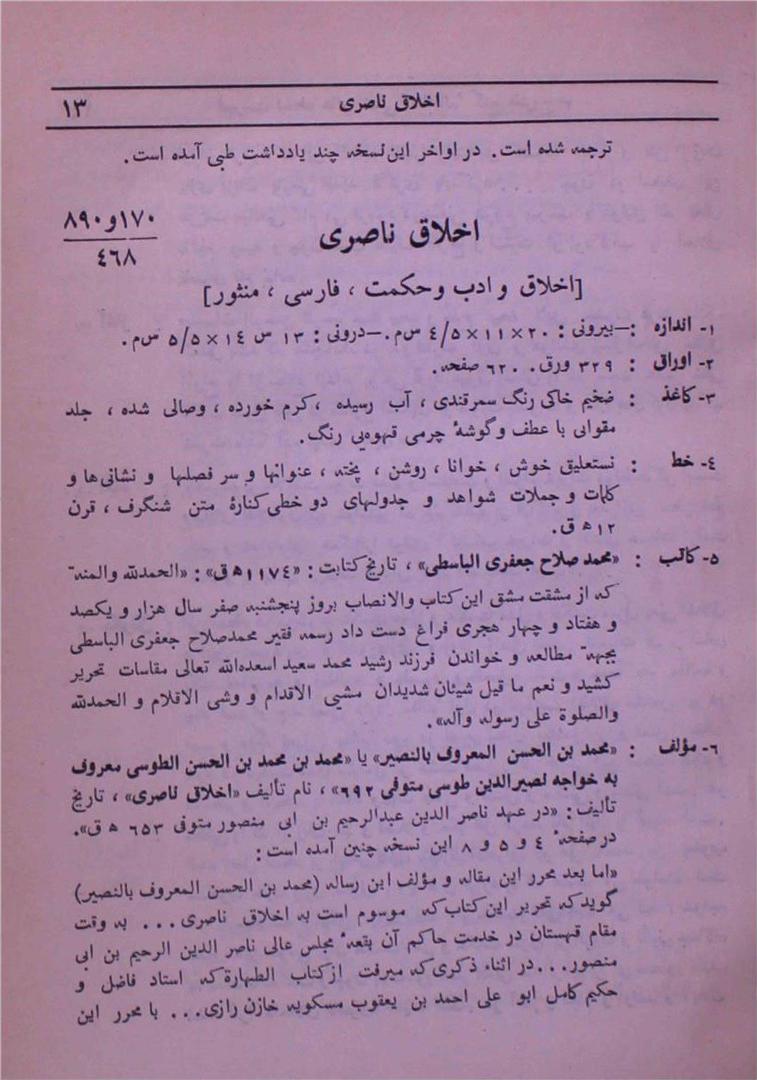 اخلاق ناصری
۱۳
ترجمه شده است. در اواخر این نسخه چند یادداشت طبی آمده است.
۱۷۰و۸۹۰
٤٦٨
اخلاق ناصری
[اخلاق و ادب و حکمت ، فارسی ، منثور]
۱- اندازه : —بیرونی : ۲۰×۱۱×٤/۵ س‌م. —درونی : ۱۳ س ۱٤ × ۵/۵ س‌م.
۲- اوراق : ۳۲۹ ورق. ٦۲۰ صفحه.
۳- کاغذ : ضخیم خاکی رنگ سمرقندی ، آب رسیده ،کرم خورده ، وصالی شده ، جلد
مقوایی با عطف و گوشهٔ چرمی قهوه‌یی رنگ.
٤- خط : نستعلیق خوش ، خوانا ، روشن ، پخته ، عنوانها و سر فصلها و نشانی‌ها و
کلمات و جملات شواهد و جدولهای دو خطی کنارهٔ متن شنگرف ، قرن
۱۲ ه‍ ق.
۵- کاتب : «محمد صلاح جعفری الباسطی» ، تاریخ کتابت : «۱۱۷٤ ه‍ ق» : «الحمدلله والمنة
که از مشقت مشق این کتاب والانصاب بروز پنجشنبه صفر سال هزار و یکصد
و هفتاد و چهار هجری فراغ دست داد رسمه فقیر محمدصلاح جعفری الباسطی
بجهة مطالعه و خواندن فرزند رشید محمد سعید اسعده‌الله تعالی مقاسات تحریر
کشید و نعم ما قیل شیئان شدیدان مشی الاقدام و وشی الاقلام و الحمدلله
والصلوة علی رسوله وآله».
٦- مؤلف : «محمد بن الحسن المعروف بالنصیر» یا «محمد بن محمد بن الحسن الطوسی معروف
به خواجه نصیرالدین طوسی متوفی ٦۹۲» ، نام تألیف «اخلاق ناصری» ، تاریخ
تألیف : «در عهد ناصر الدین عبدالرحیم بن ابی منصور متوفی ٦۵۳ ه‍ ق».
در صفحهٔ ٤ و ۵ و ۸ این نسخه چنین آمده است :
«اما بعد محرر این مقاله و مؤلف این رساله (محمد بن الحسن المعروف بالنصیر)
گوید که تحریر این کتاب که موسوم است به اخلاق ناصری ... به وقت
مقام قهستان در خدمت حاکم آن بقعهٔ مجلس عالی ناصر الدین الرحیم بن ابی
منصور...در اثناء ذکری که میرفت از کتاب الطهارة که استاد فاضل و
حکیم کامل ابو علی احمد بن یعقوب مسکویه خازن رازی... با محرر این